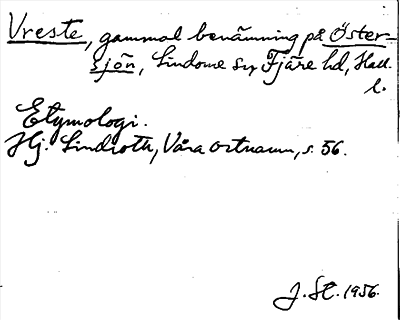 Vreste, gammal benämning på Öster-
sjön, Lindome sn Fjäre hd, Hall.
l.
Etymologi.
Hj. Lindroth, Våra ortnamn, s. 56.
J. St. 1956.